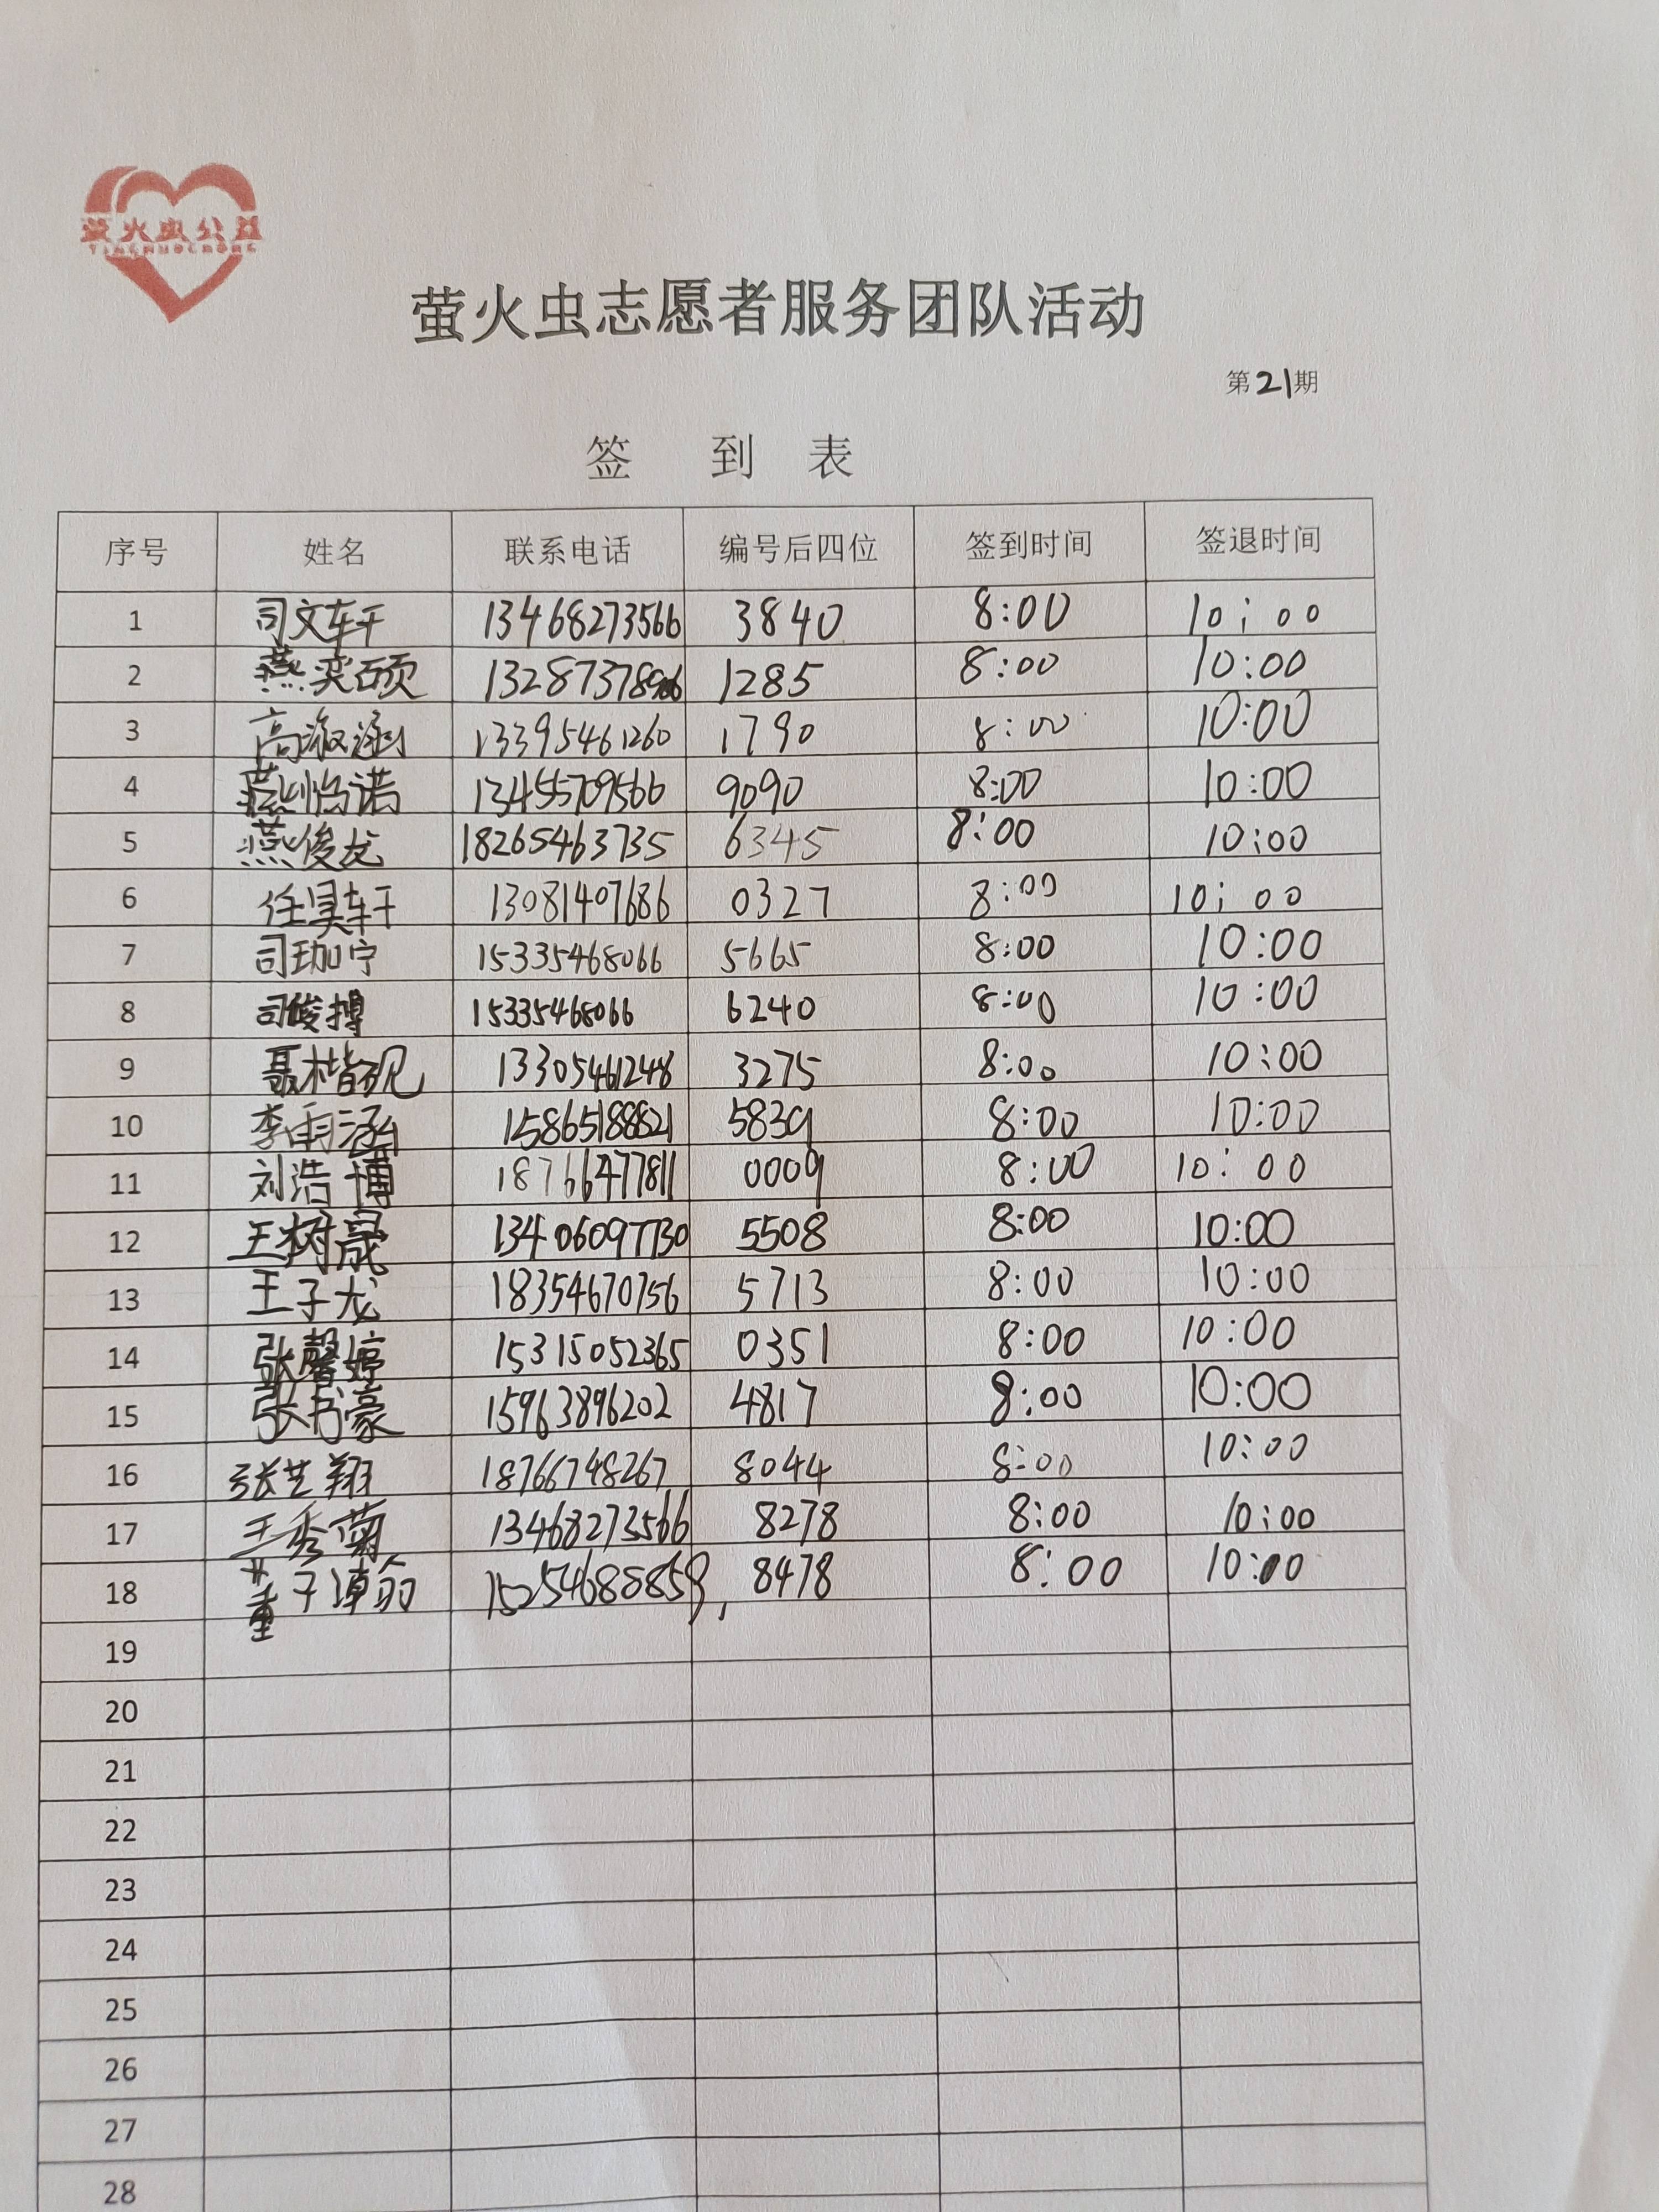 萤火虫公益
萤火虫志愿者服务团队活动
第21期
签 到 表
序号 姓名 联系电话 编号后四位 签到时间 签退时间
1 司文轩 13468273566 3840 8:00 10:00
2 燕奕硕 1285 8:00 10:00
3 高淑涵 13395461260 1790 8:00 10:00
4 燕怡诺 13455709566 9090 8:00 10:00
5 燕俊龙 18265463735 6345 8:00 10:00
6 任昊轩 13081407686 0327 8:00 10:00
7 司珈宁 15335468066 5665 8:00 10:00
8 司俊搏 15335468066 6240 8:00 10:00
9 聂楷砚 13305461248 3275 8:00 10:00
10 李雨涵 15865188821 5839 8:00 10:00
11 刘浩博 18766477811 0009 8:00 10:00
12 王树晟 13406097730 5508 8:00 10:00
13 王子龙 18354670756 5713 8:00 10:00
14 张馨婷 15315052365 0351 8:00 10:00
15 张书豪 15963896202 4817 8:00 10:00
16 张艺翔 18766748267 8044 8:00 10:00
17 王秀菊 13468273566 8278 8:00 10:00
18 董子 15254688859, 8478 8:00 10:00
19
20
21
22
23
24
25
26
27
28